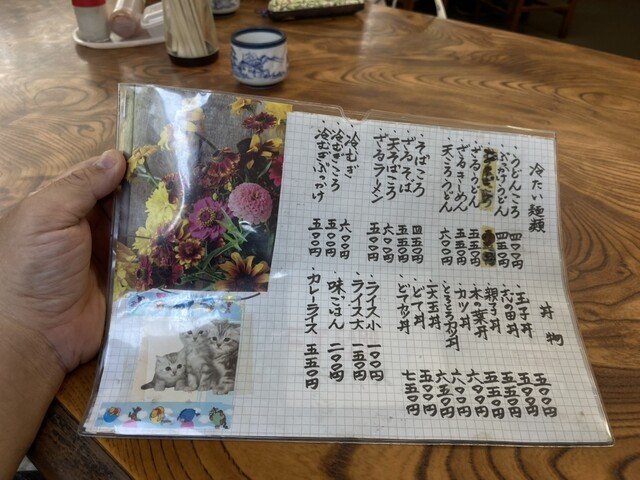 冷たい麺類
・うどんころ 四〇〇円
ぶっかけうどん 四五〇円
ざるうどん 五五〇円
ざるきしめん 五五〇円
天ころうどん 六〇〇円
・そばころ 四五〇円
ざるそば 五五〇円
天そばころ 六〇〇円
ざるラーメン 五〇〇円
冷むぎ 六〇〇円
冷むぎころ 五〇〇円
冷むぎぶっかけ 五五〇円
丼物
・玉子丼 五〇〇円
志の田丼 五五〇円
親子丼 五五〇円
木の葉丼 五五〇円
カツ丼 六〇〇円
天玉丼
・どて丼 五〇〇円
・ライス小 一〇〇円
ライス大 一五〇円
味ごはん 二〇〇円
・カレーライス 五五〇円